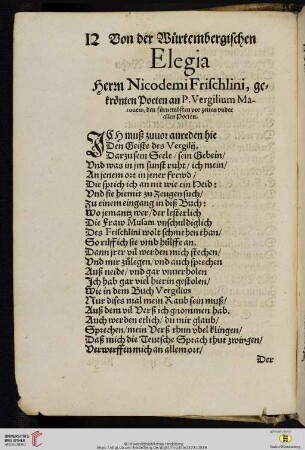 12 Von der Würtembergischen
Elegia
Herrn Nicodemi Frischlini, ge-
krönten Poeten an P. Vergilium Ma-
ronem, den fürnembsten vor zeiten vnder
allen Poeten.
ICH muß zuuor anreden hie
Den Geiste des Vergilij,
Darzu sein Seele / sein Gebein /
Vnd was in jm sunst ruht / ich mein /
An jenem ort in jener frewd /
Die sprich ich an nit wie ein Heid:
Vnd sie hiemit zu Zeugen such /
Zu einem eingang in diß Buch:
Wo jemantz wer / der lesterlich
Die Fraw Musam vnschuldiglich
Des Frischlini wolt schmehen than /
So rüff ich sie vmb hülffe an.
Dann jrer vil werden mich stechen /
Vnd mir zülegen / vnd auch sprechen
Auß neide / vnd gar vnuerholen
Ich hab gar vil hierin gestolen /
Wie in dem Buch Vergilius
Nur dises mal mein Raub sein muß /
Auß dem vil Verß ich gnommen hab.
Auch werden etlich / du mir glaub /
Sprechen / mein Verß thun vbel klingen /
Daß mich die Teutsche Sprach thut zwingen /
Verwerffen mich an allem ort /
Der